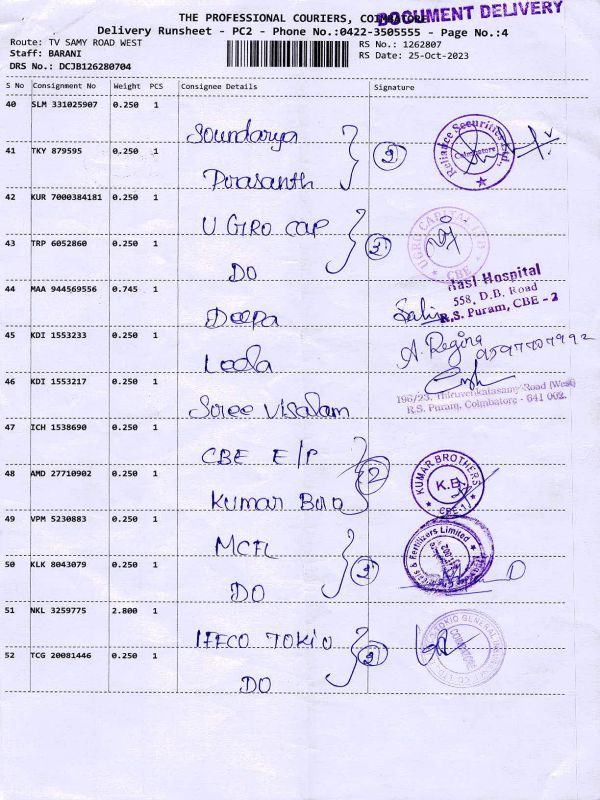 THE PROFESSIONAL COURIERS, COIMBATORE
DOCUMENT DELIVERY
Delivery Runsheet - PC2 - Phone No.:0422-3505555 - Page No.:4
Route: TV SAMY ROAD WEST
RS No.: 1262807
Staff: BARANI
RS Date: 25-Oct-2023
DRS No.: DCJB126280704
S No Consignment No Weight PCS Consignee Details Signature
40 SLM 331025907 0.250 1 Soundarya
Reliance Securities Ltd.,
Coimbatore
41 TKY 879595 0.250 1 Prasanth
42 KUR 7000384181 0.250 1 U GRO CAP
UGRO CAPITAL LTD
CBE
43 TRP 6052860 0.250 1 DO
Hasl Hospital
558, D.B. Road
R.S. Puram, CBE - 2
44 MAA 944569556 0.745 1 Deepa
45 KDI 1553233 0.250 1 Leela A. Regina
46 KDI 1553217 0.250 1 Sree Visalam
196/23, Thiruvenkatasamy Road (West)
R.S. Puram, Coimbatore - 641 002.
47 ICH 1538690 0.250 1 CBE E/P
2
KUMAR BROTHERS
K.B.
CBE-1
48 AMD 27710902 0.250 1 Kumar Bro
49 VPM 5230883 0.250 1 MCFL
& Fertilizers Limited
50 KLK 8043079 0.250 1 DO
51 NKL 3259775 2.800 1 IFFCO TOKIO
TOKIO GENERAL
COIMBATORE
52 TCG 20081446 0.250 1 DO